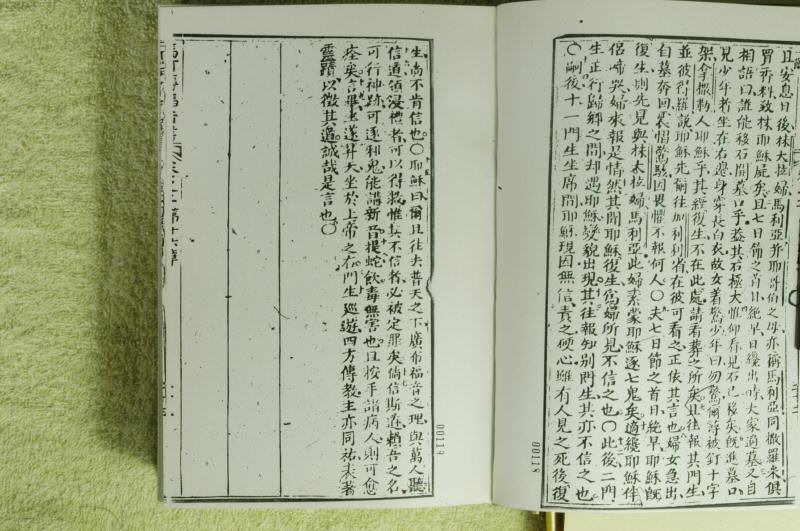 且安息日後抹大拉婦馬利亞并耶哥伯之母亦稱馬利亞同撒羅米俱
買香料致抹耶穌屍矣且七日節之首日絶早日纔出時大家過墓又自
相語曰誰能移石開墓口乎蓋其石極大惟仰看見石已移矣旣進墓口
見少年者坐在右邊身穿長白衣故女着驚少年曰勿驚爾尋被釘十字
架拿撒勒人耶穌乎其經復生不在此處請看葬之所矣且往報其門生
並彼得羅説耶穌先爾往加利利省在彼可看之正依其言也婦女急出
自墓奔回哀惱驚駭因畏懼不報何人〇夫七日節之首日絶早耶穌旣
復生則先見與抹太拉婦馬利亞此婦素蒙耶穌逐七鬼矣適纔耶穌伴
侶啼哭婦來報是情然其聞耶穌復生爲婦所見不信之也〇此後二門
生正行歸鄉之間却遇耶穌發貌出現其往報知别門生其亦不信之也
〇嗣後十一門生坐席間耶穌現因無信責之硬心雖有人見之死後復
生尚不肯信也〇耶穌曰爾且往去普天之下廣布福音之理與萬人聽
信道領浸禮者可以得救惟其不信者必被定罪矣倘信斯道賴吾之名
可行神跡可逐利鬼能講新音提蛇飲毒無害也且按手諸病人則可愈
痊矣言畢主遂昇天坐於上帝之右門生廵遊四方傳教主亦同祐夫著
靈蹟以徵其道誠哉是言也〇
00119
00119